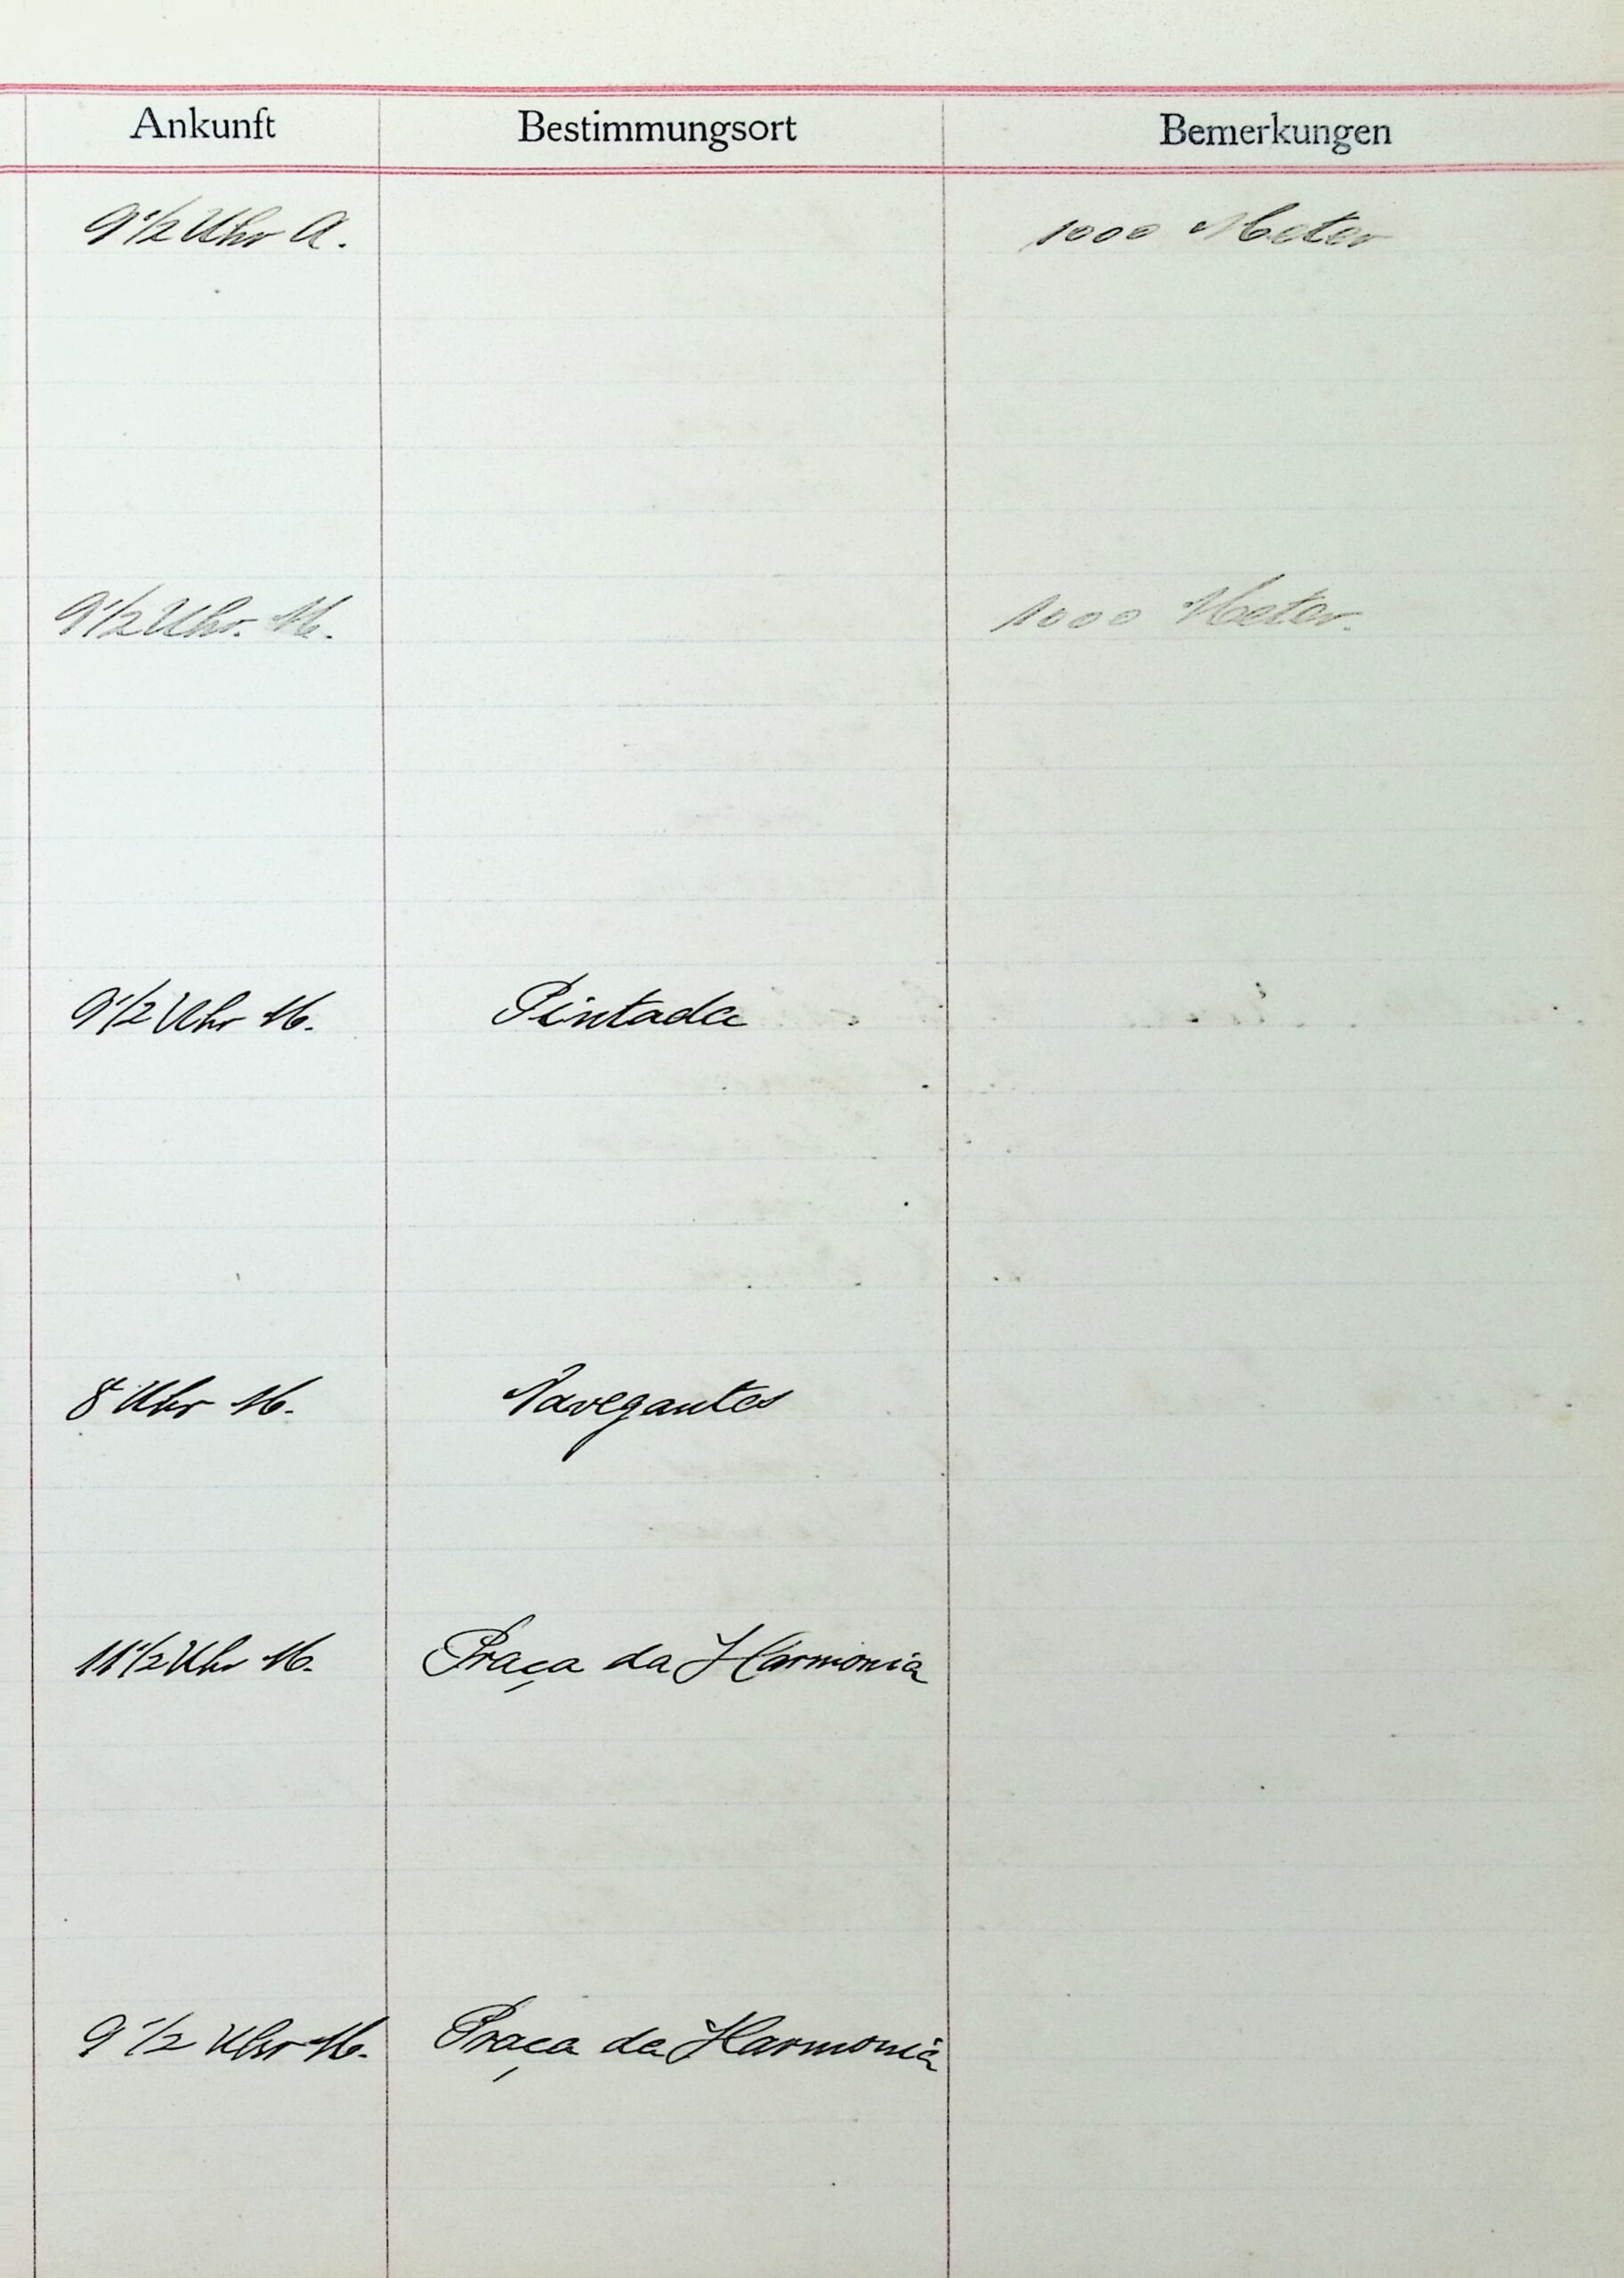 Ankunft Bestimmungsort Bemerkungen
9 1/2 Uhr A. 1000 Meter
9 1/2 Uhr. M. 1000 Meter.
9 1/2 Uhr M. Pintada
8 Uhr M. Navegantes
11 1/2 Uhr M. Praça da Harmonia
9 1/2 Uhr M. Praça da Harmonia